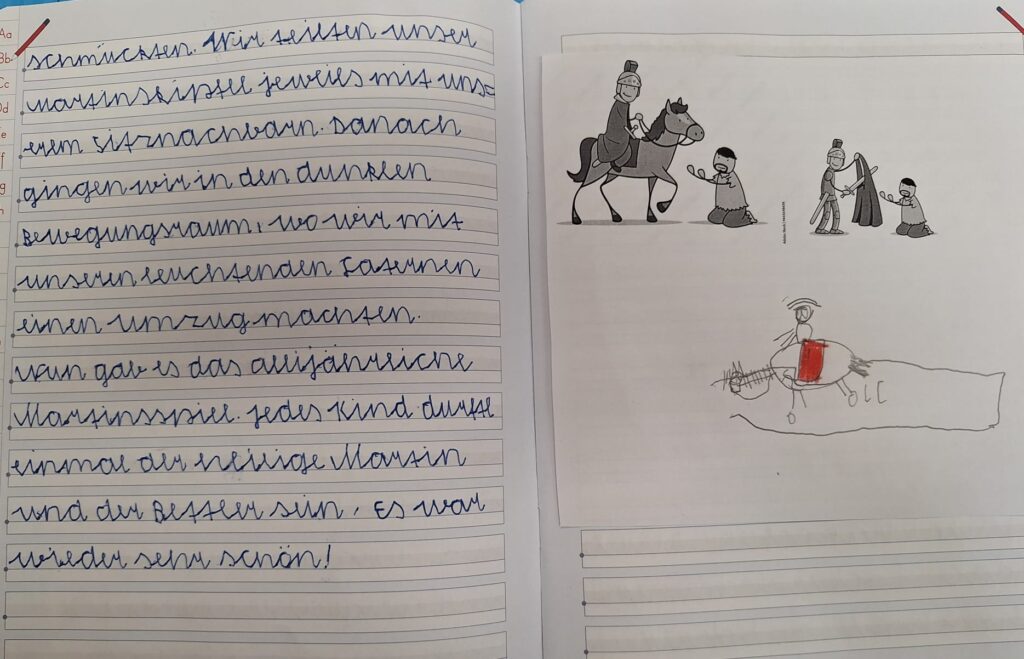 Aa
Bb
Cc
Dd
schmückten. Wir teilten unser
Martinskipfel jeweils mit uns=
erem Sitznachbarn. Danach
gingen wir in den dunklen
Bewegungsraum, wo wir mit
unseren leuchtenden Laternen
einen Umzug machten.
Nun gab es das alljährliche
Martinsspiel. Jedes Kind durfte
einmal der heilige Martin
und der Bettler sein. Es war
wieder sehr schön!